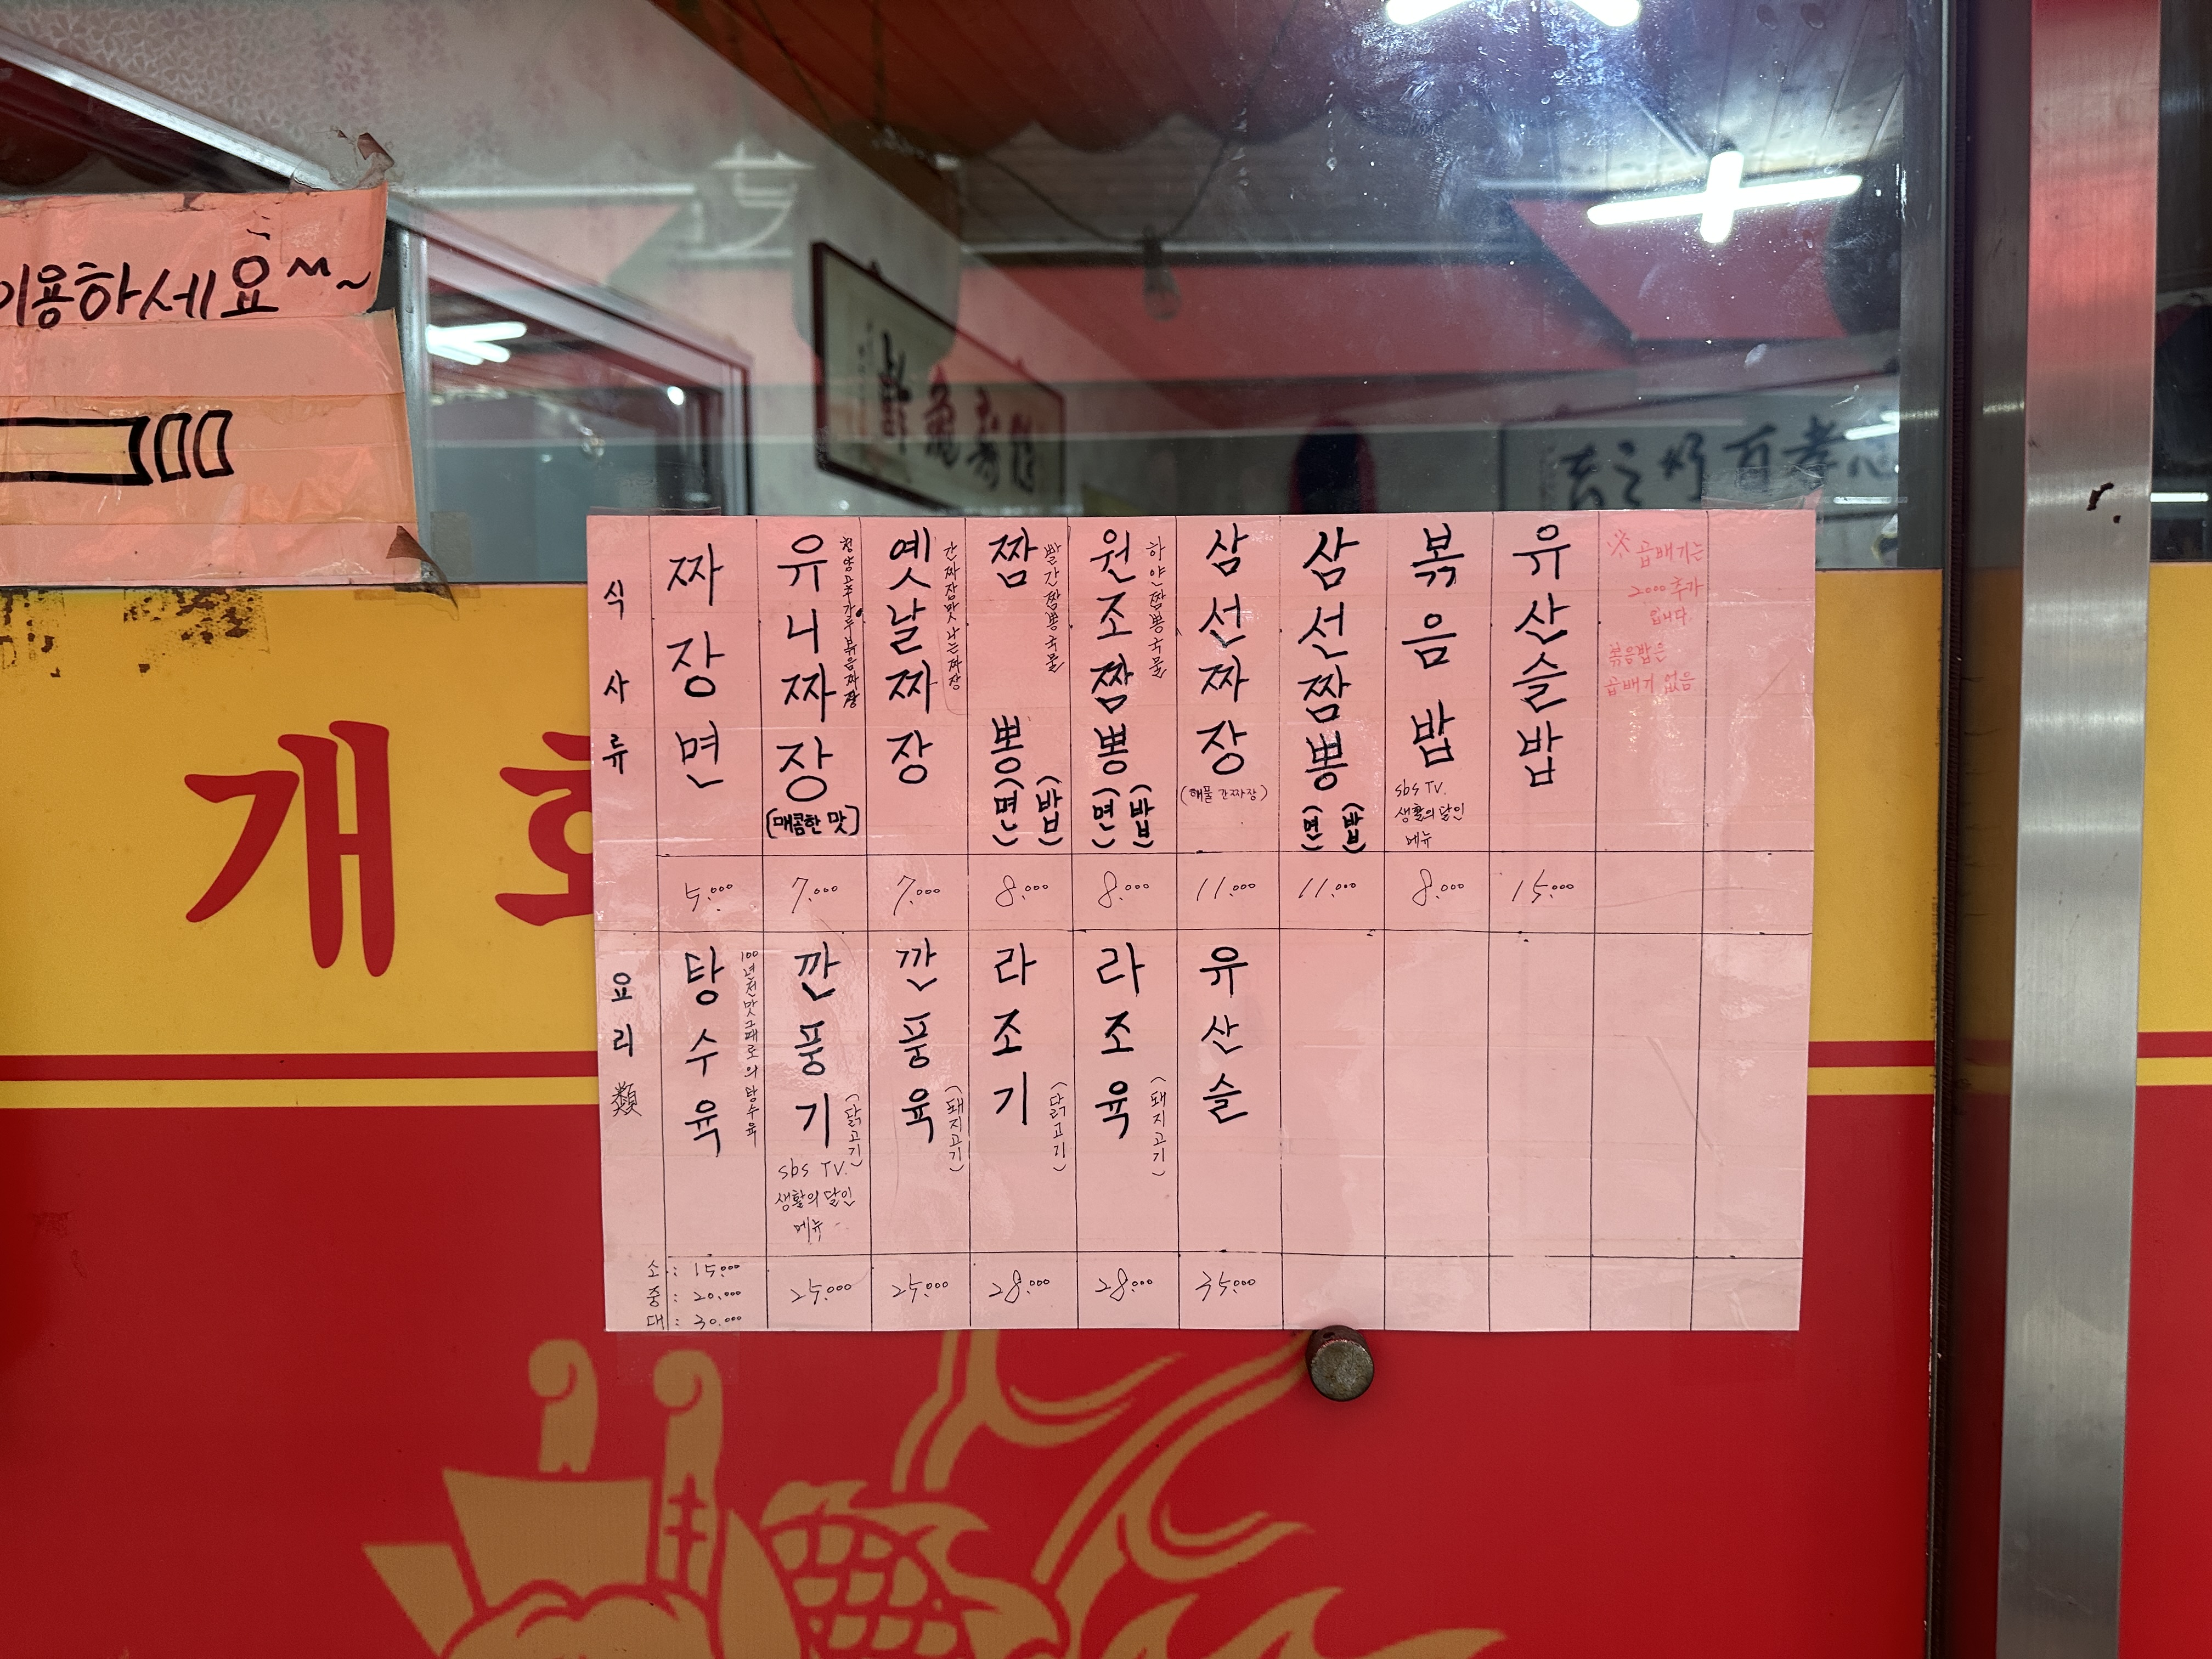 이용하세요^^~
개
식사류
짜장면
5.000
유니짜장
(매콤한 맛)
청양고추가루볶음짜장
7.000
옛날짜장
간짜장맛나는짜장
7.000
짬뽕(면)(밥)
빨간짬뽕국물
8.000
원조짬뽕(면)(밥)
하얀짬뽕국물
8.000
삼선짜장
(해물간짜장)
11.000
삼선짬뽕(면)(밥)
11.000
볶음밥
sbs TV.
생활의달인
메뉴
8.000
유산슬밥
15.000
※ 곱배기는
2000 추가
입니다.
볶음밥은
곱배기 없음
요리類
탕수육
100년전맛그대로의탕수육
소: 15.000
중: 20.000
대: 30.000
깐풍기
(닭고기)
sbs TV.
생활의달인
메뉴
25.000
깐풍육
(돼지고기)
25.000
라조기
(닭고기)
28.000
라조육
(돼지고기)
28.000
유산슬
35.000